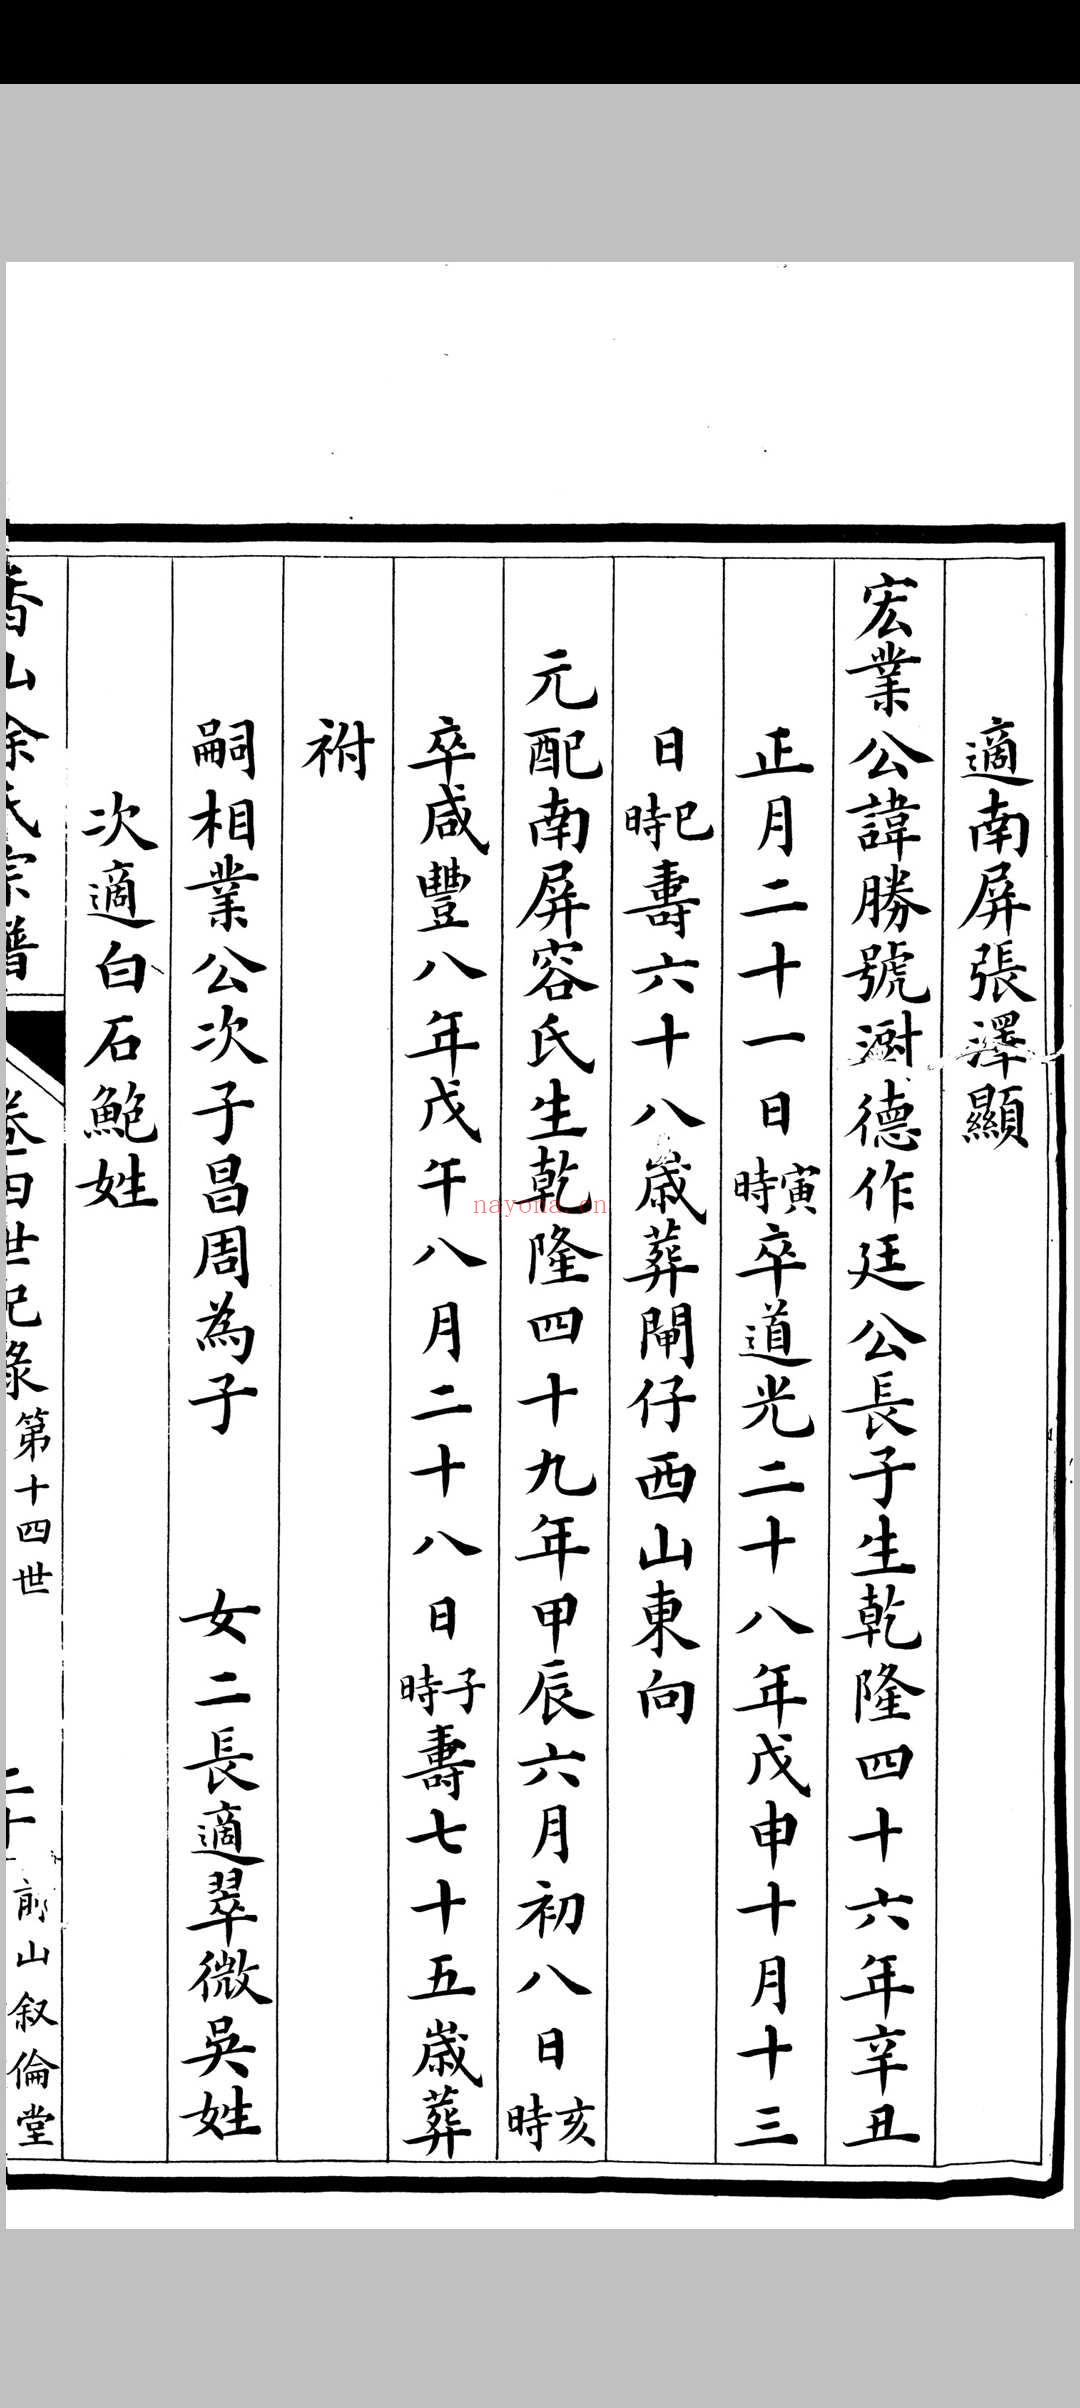 適南屏張澤顯
宏業公諱勝號澍德作廷公長子生乾隆四十六年辛丑
正月二十一日寅時卒道光二十八年戊申十月十三
日巳時壽六十八歲葬閘仔西山東向
元配南屏容氏生乾隆四十九年甲辰六月初八日亥時
卒咸豐八年戊午八月二十八日子時壽七十五歲葬
祔
嗣相業公次子昌周為子 女二長適翠微吳姓
次適白石鮑姓
香山余氏宗譜 卷四世紀錄 第十四世 二十 前山叙倫堂
nayona.cn